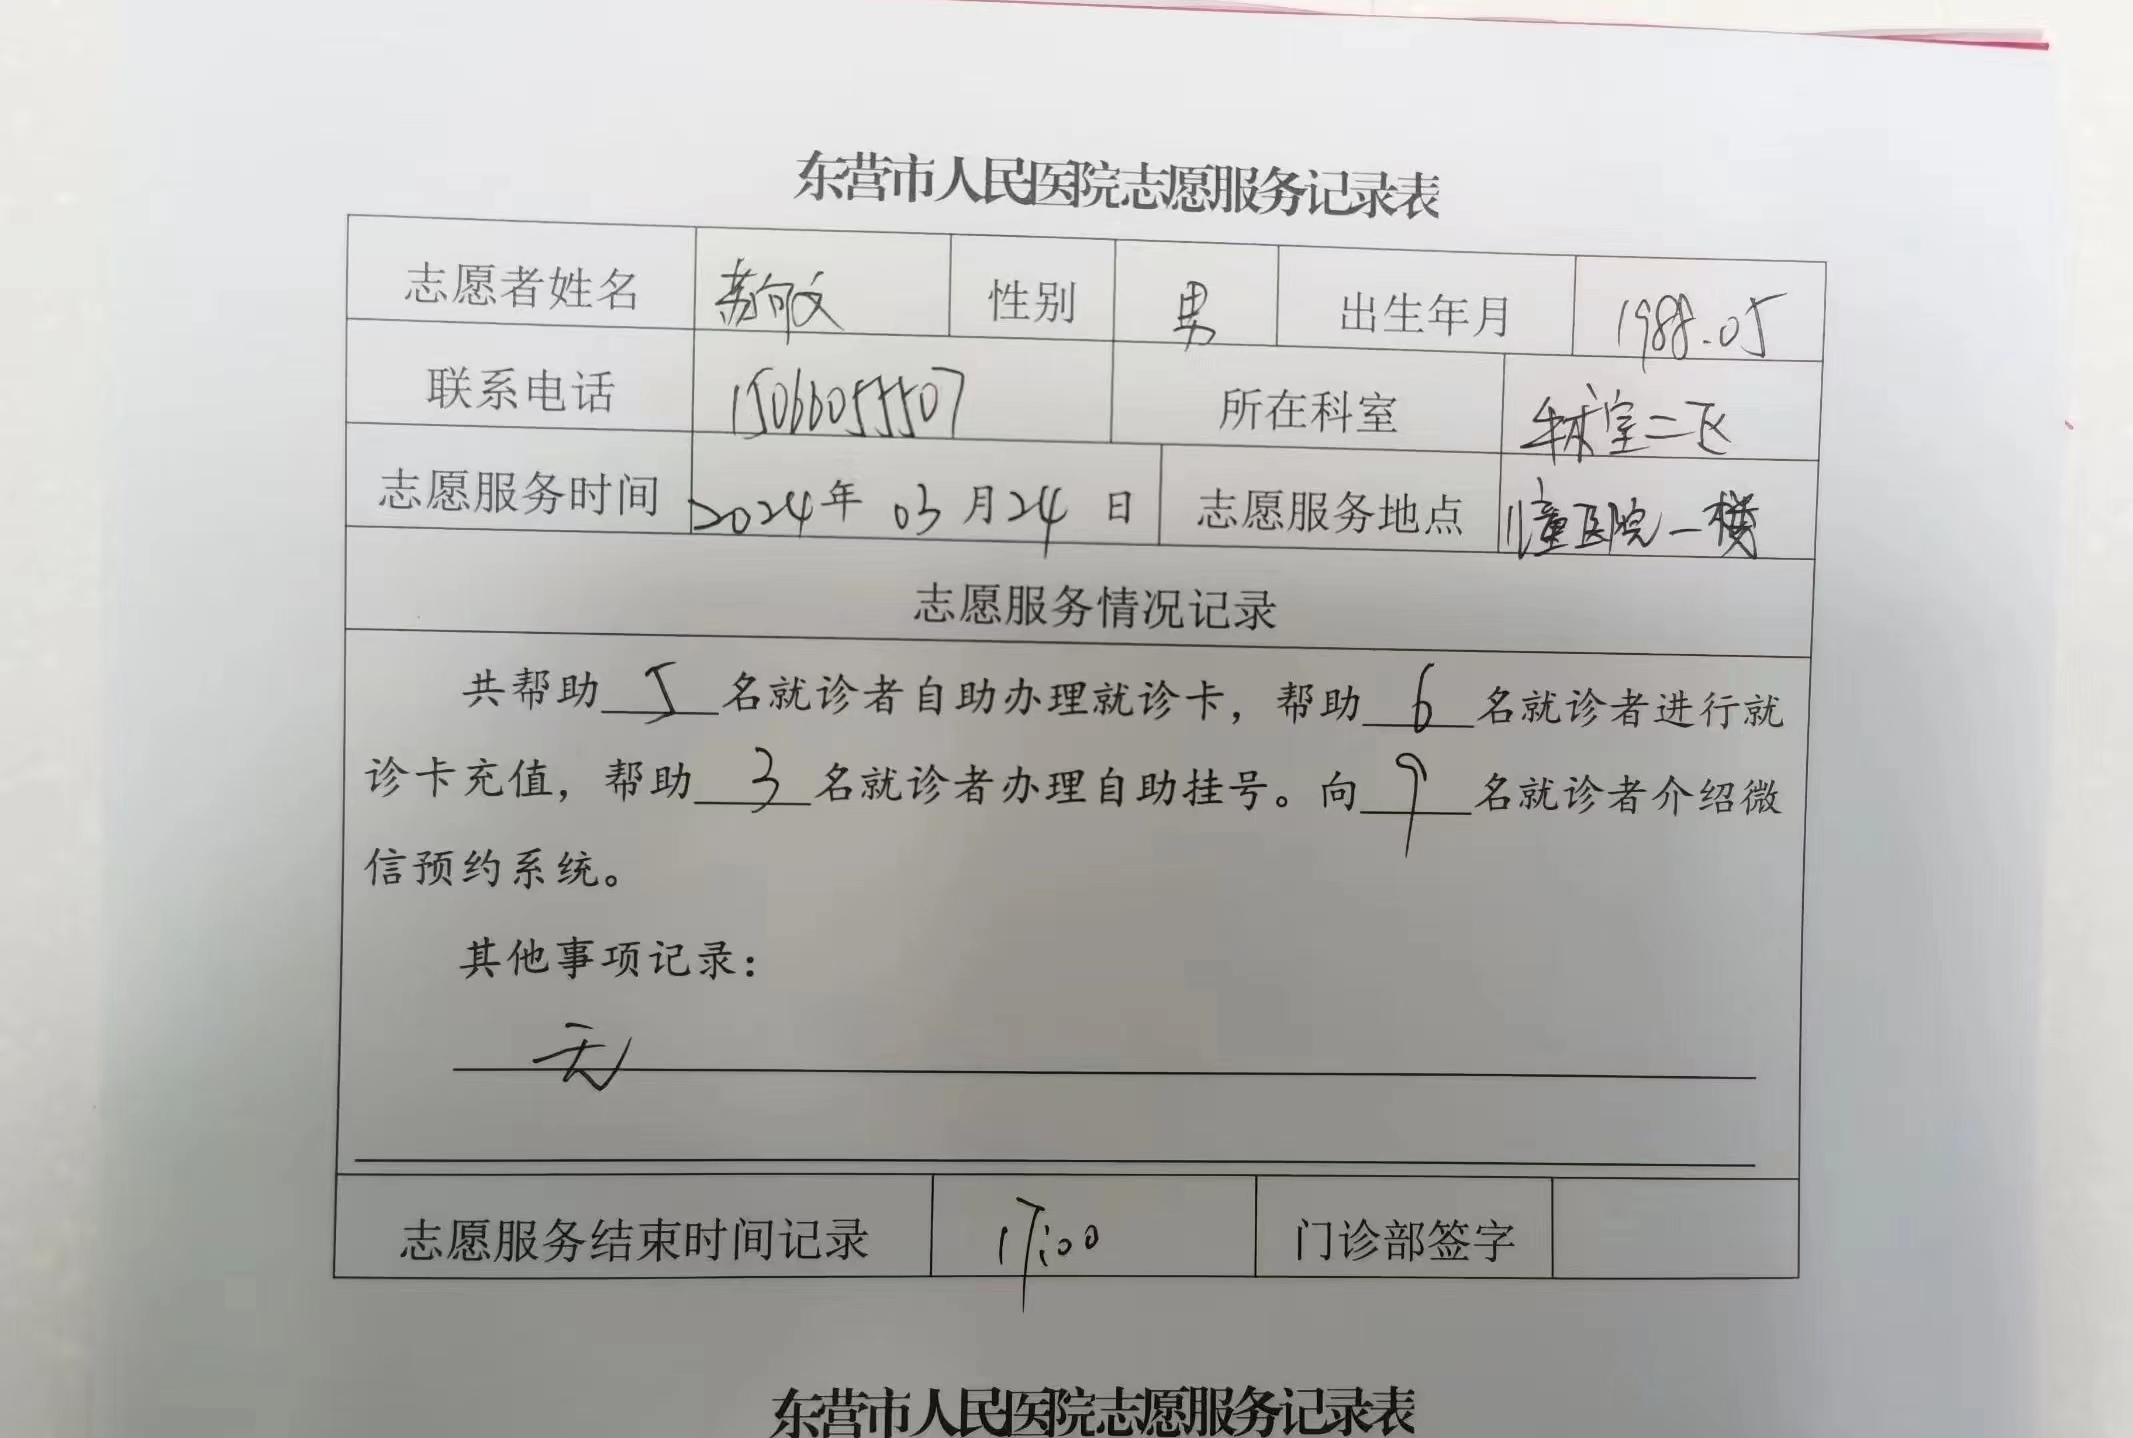 东营市人民医院志愿服务记录表
志愿者姓名 苏向文 性别 男 出生年月 1988.05
联系电话 15066055507 所在科室 手术室二区
志愿服务时间 2024年 03月24日 志愿服务地点 儿童医院一楼
志愿服务情况记录
共帮助 5 名就诊者自助办理就诊卡，帮助 6 名就诊者进行就
诊卡充值，帮助 3 名就诊者办理自助挂号。向 9 名就诊者介绍微
信预约系统。
其他事项记录：
无
志愿服务结束时间记录 17:00 门诊部签字
东营市人民医院志愿服务记录表